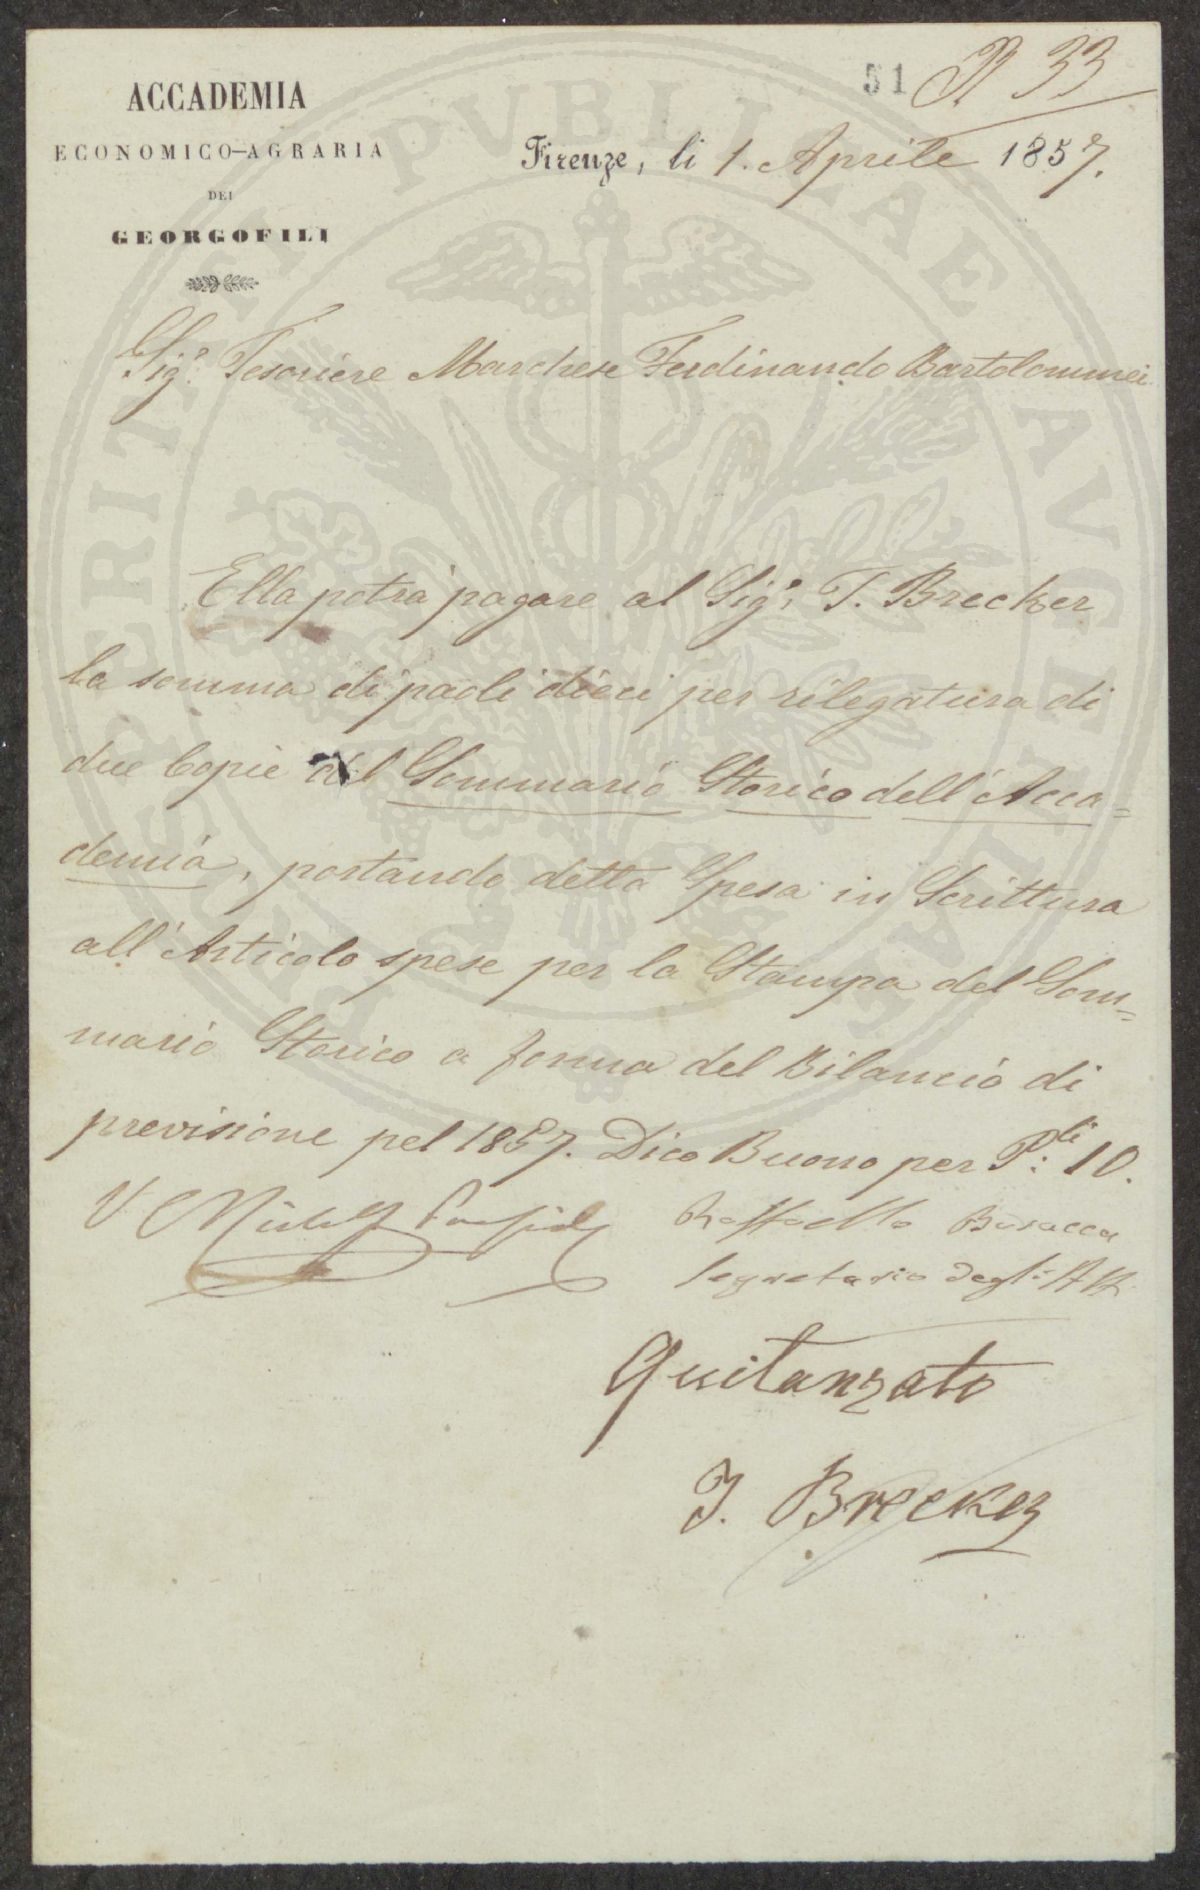 51 N 33
ACCADEMIA
ECONOMICO-AGRARIA
DEI
GEORGOFILI
Firenze, li 1. Aprile 1857.
Sig.r Tesoriere Marchese Ferdinando Bartolommei
Ella potrà pagare al Sig.r T. Brecker
la somma di paoli dieci per rilegatura di
due Copie del Sommario Storico dell'Acca=
demia, portando detta Spesa in Scrittura
all'Articolo spese per la Stampa del Som=
mario Storico a forma del Bilancio di
previsione pel 1857. Dico Buono per P.li 10.
V
Raffaello Busacca
Segretario degli Atti
Quitanzato
T. Brecker
PUBLICAE